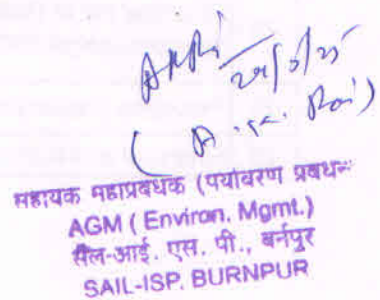 ( A. K. Roi)
सहायक महाप्रबंधक (पर्यावरण प्रबंधन
AGM ( Environ. Mgmt.)
सेल-आई. एस. पी., बर्नपुर
SAIL-ISP. BURNPUR